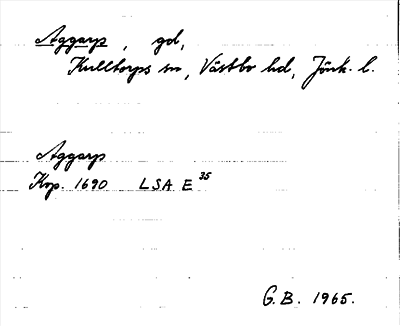 Aggarp, gd,
Kulltorps sn, Västbo hd, Jönk. l.
Aggarp
Kop. 1690 LSA E 35
G.B. 1965.